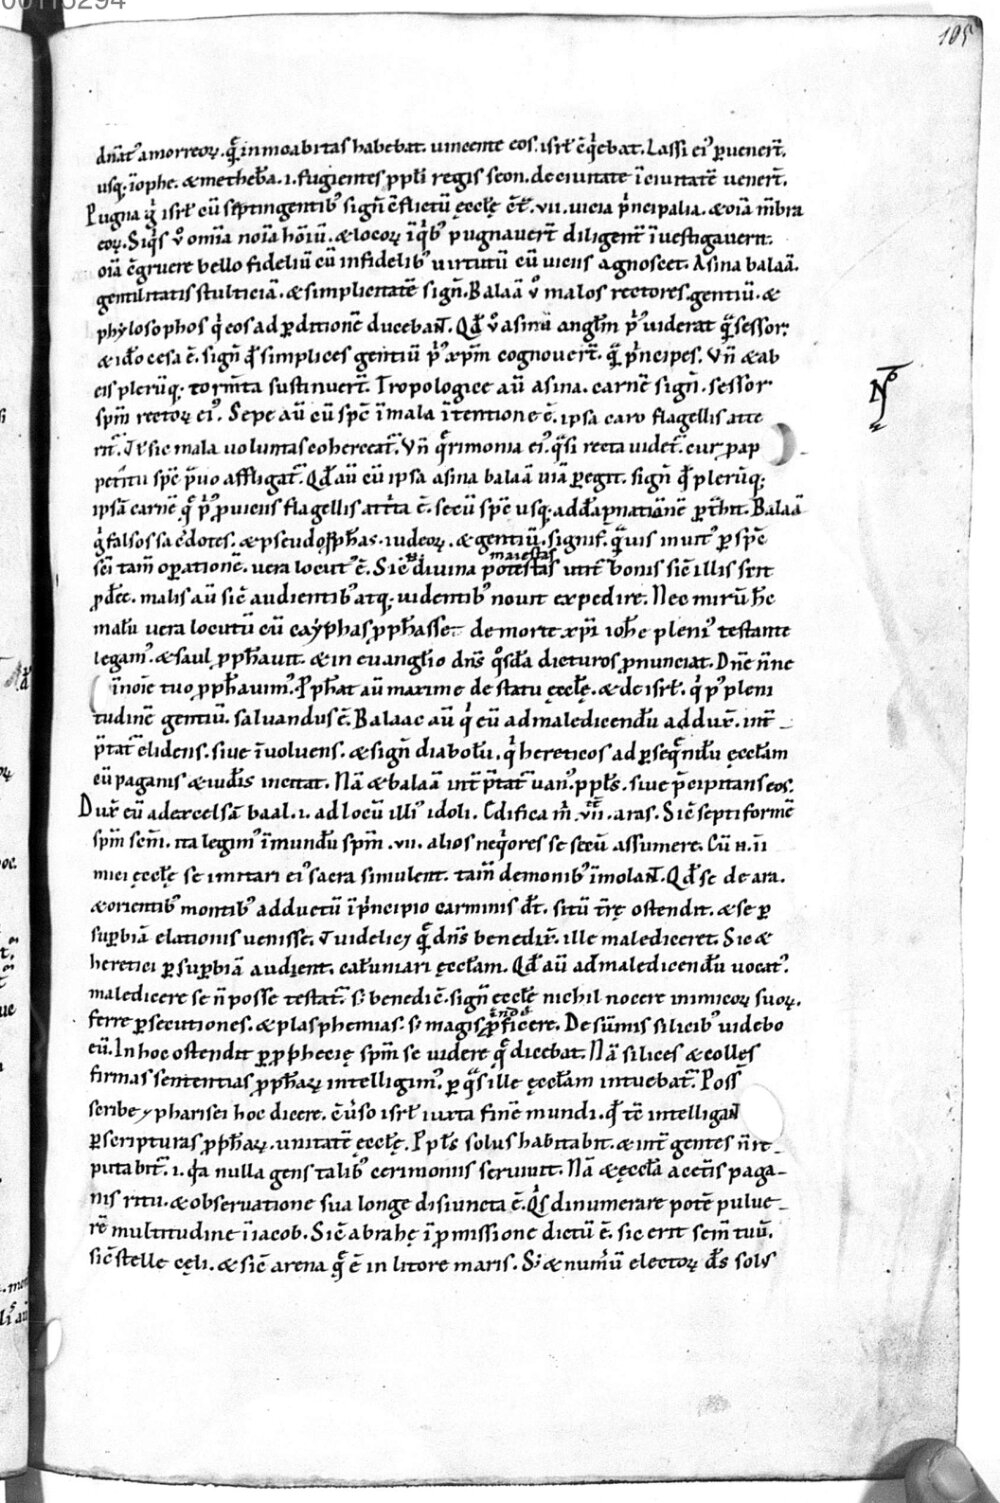 00113294
105
dn̄at᷒ amorreoꝝ. q̄ in moabitas habebat. uincente eos. isrł c̄q̇rebat. Lassi ei᷒ ꝑuenert̄.
usq; īophe. & metheb̄a. .i. fugientes ppłi regis seon. de ciuitate ī ciuitatē uenert̄.
Pugna g̊ isrł cū septingentib᷒ sign̄ c̄flictū ęccłę c̄t̄. vii. uicia p̄ncipalia. & oīa m̄bra
eoꝝ. Siq̇s u̓ omīa noīa hōiū. & locoꝝ īq̇b᷒ pugnauert̄ diligent̄ īuestigauerit.
oīa c̄gruere bello fideliū cū infidelib᷒ uirtutū cū uiciis agnoscet. Asina balaā.
gentilitatis stulticiā. & simplicitatē sign̄. Balaā u̓ malos rectores gentiū. &
phylosophos q̇ eos ad ꝑditionē ducebaN̄. Qđ u̓ asina angłm p᷒ uiderat quā sessor.
& iđo cesa ē. sign̄ qđ simplices gentiū p᷒ xp̄m cognouert̄. quā p̄ncipes. Vn̄ & ab
eis pleriq; torm̄ta sustinuert̄. Tropologice aū asina. carnē sign̄. sessor
sp̄m rectorē ei᷒. Sepe aū cū sp̄c ī mala ītentione ē. ipsa caro flagellis atte
rit᷑. Ut sic mala uoluntas coherceat᷑. Vn̄ q̄rimonia ei᷒. quasi recta uidet᷑. cur p ap
petitu sp̄c p̄uo affligat᷑. Qđ aū cū ipsa asina balaā uiā ꝑegit. sign̄ qđ pleriq;
ipsā carnē quę p᷒ ꝓ uiciis flagellis att̄ta ē. secū sp̄c usq; ad dāpnationē ꝑt̄hit. Balaā
g̊ falsos sac̄dotes. & pseudoꝓph̄as. iudeoꝝ. & gentiū. signif. q̄uis inuit᷒ ꝑ sp̄c
sc̄i tam̄ oꝑationē. uera locut᷒ ē. Sic̄ diuina potestas maiestas utit᷑ bonis sic̄ illis scit
ꝓđee. malis aū sic̄ audientib᷒ atq; uidentib᷒ nouit expedire. Nec mirū h̄c
malū uera locutū cū caẏphas ꝓph̄asse. de morte xp̄i ioh̄e pleni᷒ testante
legam᷒. & saul ꝓph̄auit. & in euangłio dn̄s q̊sdā dicturos ꝓnunciat. Dn̄e n̄ne
ī noīe tuo ꝓph̄auim᷒. Ꝓph̄at aū maxime de statu ęccłę. & de isrł. q̇ p᷒ pleni
tudinē gentiū. saluandus ē. Balaac aū q̇ cū ad maledicendū addux̄. int̄
p̄tat᷑ elidens. siue īuoluens. & sign̄ diabolū. q̇ hereticos ad ꝑseq̄ndū ęccłam
cū paganis & iudis incitat. Nā & balaā int̄p̄tat᷑ uan᷒. ppłs. siue p̄cipitans eos.
Dux̄ eū ad excelsā baal. .i. ad locū illi᷒ idoli. Edifica m̄ .vii. aras. Sic̄ septiformē
sp̄m sc̄m. ita legim᷒ īmundū sp̄m .vii. alios neq̇ores se secū assumere. Cū n. ii
mici ęccłę se imitari ei᷒ sacra simulent. tam̄ demonib᷒ īmolaN̄. Qđ se de ara.
& orientib᷒ montib᷒ adductū ī p̄ncipio carminis đt. sitū t̄rę ostendit. & se ꝑ
suꝑbiā elationis uenisse. Uidelicꝫ q̄ dn̄s benedix̄. ille malediceret. Sic &
heretici ꝑ suꝑbiā audient. całumiari ęccłam. Qđ aū ad maledicendū uocat᷒.
maledicere se n̄ posse testat᷑. s; benedic̄. sign̄ ęccłę nichil nocere inimicoꝝ suoꝝ.
ferre ꝑsecutiones. & plasphemias. s; magis ꝓficere. De sūmis silicib᷒ uidebo
eū. In hoc ostendit ꝑ ꝓph̄ecię sp̄m se uidere q̄ dicebat. Nā silices & colles
firmas sententias ꝓph̄aꝝ intelligim᷒. ꝑ quas ille ęccłam intuebat᷑. Poss̄
scribe ⁊ pharisei hoc dicere. c̄uerso isrł iuxta finē mundi. qđ tc̄ intelligaN̄
ꝑ scripturas ꝓph̄aꝝ. unitatē ęccłę. Ppłs solus habitabit. & int̄ gentes n̄ re
putabit᷑. .i. qa nulla gens talib᷒ cerimoniis seruiuit. Nā & ęccła a cet̄is paga
nis ritu. & obseruatione sua longe disiuncta ē. Q̇s dinumerare potē pulue
rē multitudine ī iacob. Sic̄ abrahę ī ꝓmissione dictū ē. sic erit sem̄ tuū.
sic̄ stelle cęli. & sic̄ arena quę ē in litore maris. S; & num̄ū electoꝝ đs sol᷒